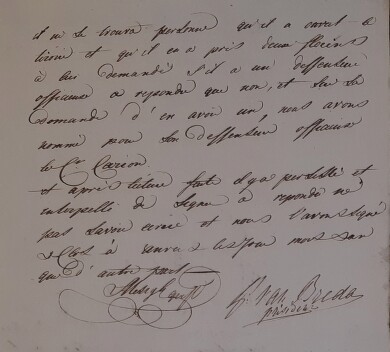 il ne se trouva personne qu'il a ouvert le
tiroir et qu'il en a pris deux florins
à lui demandé s'il a un deffenseur
officieux a repondu que non, et sur sa
demande d'en avoir un, nous avons
nommé pour son deffenseur officieux
le Cen Carion
et après lecture faite il y a persisté et
interpellé de signer a repondu ne
pas savoir ecrire et nous l'avons signé
clos à les jour mois an
que d'autre part
G. Van Breda
président